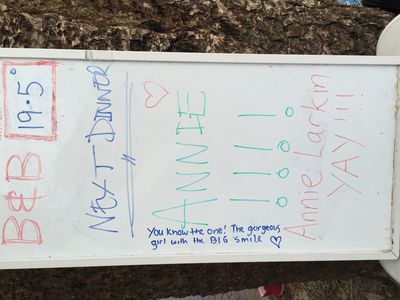 B&B 19.5°
NEXT DINNER
ANNIE
!!!!
You know the one! The gorgeous
girl with the BIG smile ♡
Annie Larkin
YAY!!!